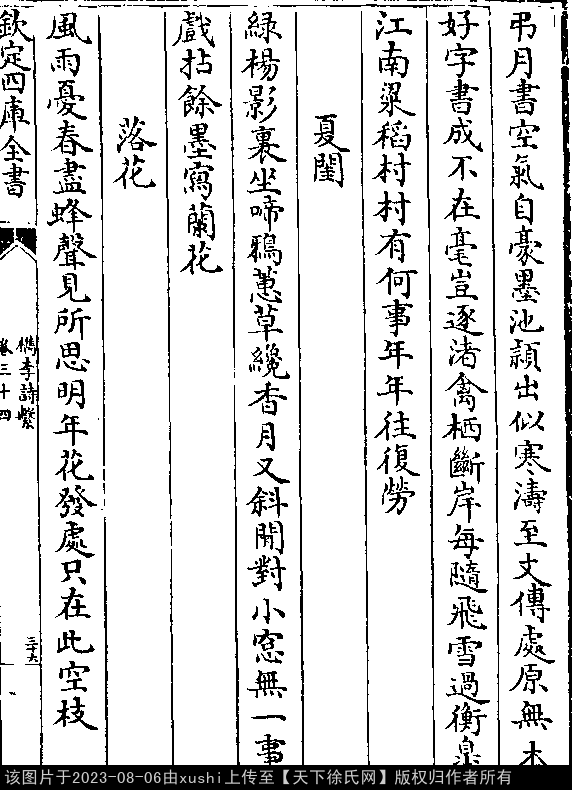 弔月書空氣自豪墨池頴出似寒濤至文傳處原無木
好字書成不在毫豈逐渚禽栖斷岸每隨飛雪過衡臯
江南粱稻村村有何事年年往復勞
夏閨
綠楊影裏坐啼鴉蕙草纔香月又斜開對小窓無一事
戲拈餘墨寫蘭花
落花
風雨憂春盡蜂聲見所思明年花發處只在此空枝
欽定四庫全書
檇李詩繫
卷三十四
三十六
该图片于2023-08-06由xushi上传至【天下徐氏网】版权归作者所有